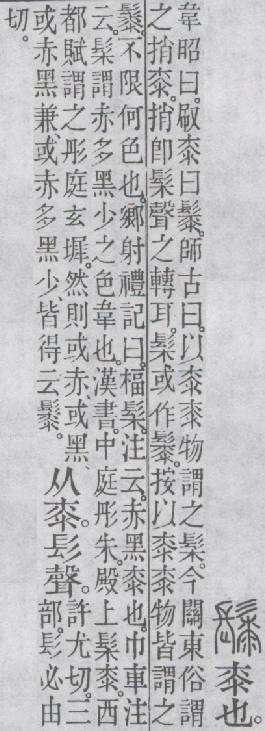 䰍桼也。
韋昭曰。㕞桼曰䰍。師古曰。以桼桼物謂之髤。今關東俗謂
之捎桼。捎卽髤聲之轉耳。髤或作䰍。按以桼桼物皆謂之
䰍、不限何色也。鄉射禮記曰。楅髤。注云。赤黑桼也。巾車注
云。髤謂赤多黑少之色韋也。漢書。中庭彤朱。殿上髤桼。西
都賦謂之彤庭玄墀。然則或赤或黑、
或赤黑兼、或赤多黑少、皆得云䰍。
从桼髟聲。
許尤切。三
部。髟必由
切。